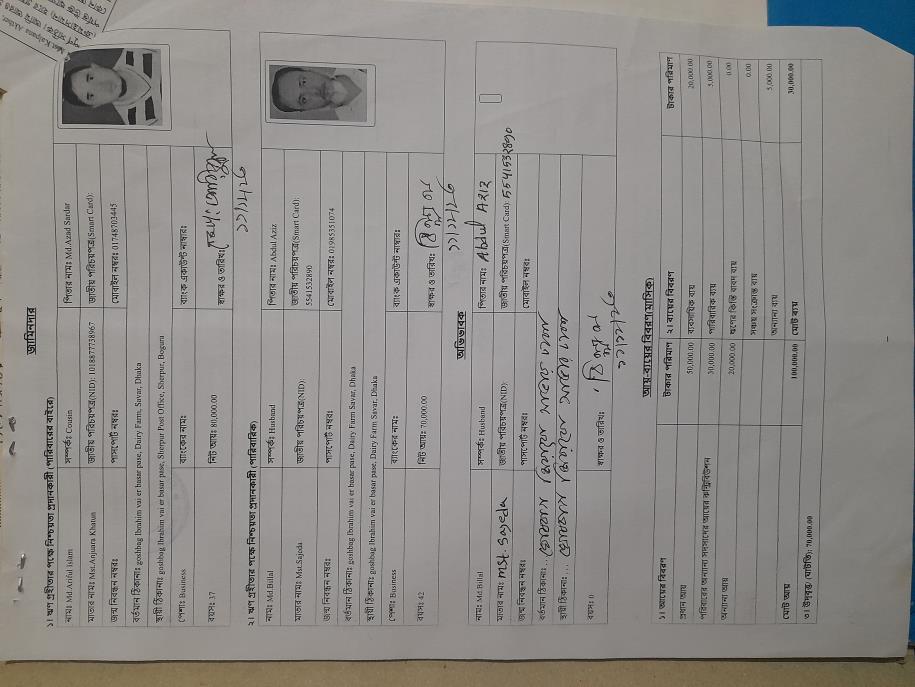 জামিনদার
১। ঋণ গ্রহীতার পক্ষে নিশ্চয়তা প্রদানকারী (পরিবারের বাইরে)
নাম: Md.Ariful Islam সম্পর্ক: Cousin পিতার নাম: Md.Azad Sardar
মাতার নাম: Mst.Anjuara Khatun জাতীয় পরিচয়পত্র(NID): 1018877738967 জাতীয় পরিচয়পত্র(Smart Card):
জন্ম নিবন্ধন নম্বর: পাসপোর্ট নম্বর: মোবাইল নম্বর: 01748703445
বর্তমান ঠিকানা: goshbag Ibrahim vai er basar pase, Dairy Farm, Savar, Dhaka
স্থায়ী ঠিকানা: goshbag Ibrahim vai er basar pase, Sherpur Post Office, Sherpur, Bogura
পেশা: Business ব্যাংকের নাম: ব্যাংক একাউন্ট নাম্বার:
বয়স: 37 নিট আয়: 80,000.00 স্বাক্ষর ও তারিখ:
২। ঋণ গ্রহীতার পক্ষে নিশ্চয়তা প্রদানকারী (পারিবারিক)
নাম: Md.Billal সম্পর্ক: Husband পিতার নাম: Abdul Aziz
মাতার নাম: Mst.Sajeda জাতীয় পরিচয়পত্র(NID): জাতীয় পরিচয়পত্র(Smart Card): 5541532890
জন্ম নিবন্ধন নম্বর: পাসপোর্ট নম্বর: মোবাইল নম্বর: 01985351074
বর্তমান ঠিকানা: goshbag Ibrahim vai er basar pase, Dairy Farm, Savar, Dhaka
স্থায়ী ঠিকানা: goshbag Ibrahim vai er basar pase, Dairy Farm Savar, Dhaka
পেশা: Business ব্যাংকের নাম: ব্যাংক একাউন্ট নাম্বার:
বয়স: 42 নিট আয়: 70,000.00 স্বাক্ষর ও তারিখ:
অভিভাবক
নাম: Md.Billal সম্পর্ক: Husband পিতার নাম: Abdul Aziz
মাতার নাম: Mst. Sayeda জাতীয় পরিচয়পত্র(NID): জাতীয় পরিচয়পত্র(Smart Card): 5541532890
জন্ম নিবন্ধন নম্বর: পাসপোর্ট নম্বর: মোবাইল নম্বর:
বর্তমান ঠিকানা:
স্থায়ী ঠিকানা:
বয়স: 0 স্বাক্ষর ও তারিখ:
আয়-ব্যয়ের বিবরণ(মাসিক)
১। আয়ের বিবরণ টাকার পরিমাণ ২। ব্যয়ের বিবরণ টাকার পরিমাণ
প্রধান আয় 50,000.00 ব্যবসায়িক ব্যয় 20,000.00
পরিবারের অন্যান্য সদস্যদের আয়ের কন্ট্রিবিউশন 30,000.00 পারিবারিক ব্যয় 5,000.00
অন্যান্য আয় 20,000.00 ঋণের কিস্তি বাবদ ব্যয় 0.00
সঞ্চয় সংক্রান্ত ব্যয় 0.00
অন্যান্য ব্যয় 5,000.00
মোট আয় 100,000.00 মোট ব্যয় 30,000.00
৩। উদ্বৃত্ত (ঘাটতি): 70,000.00